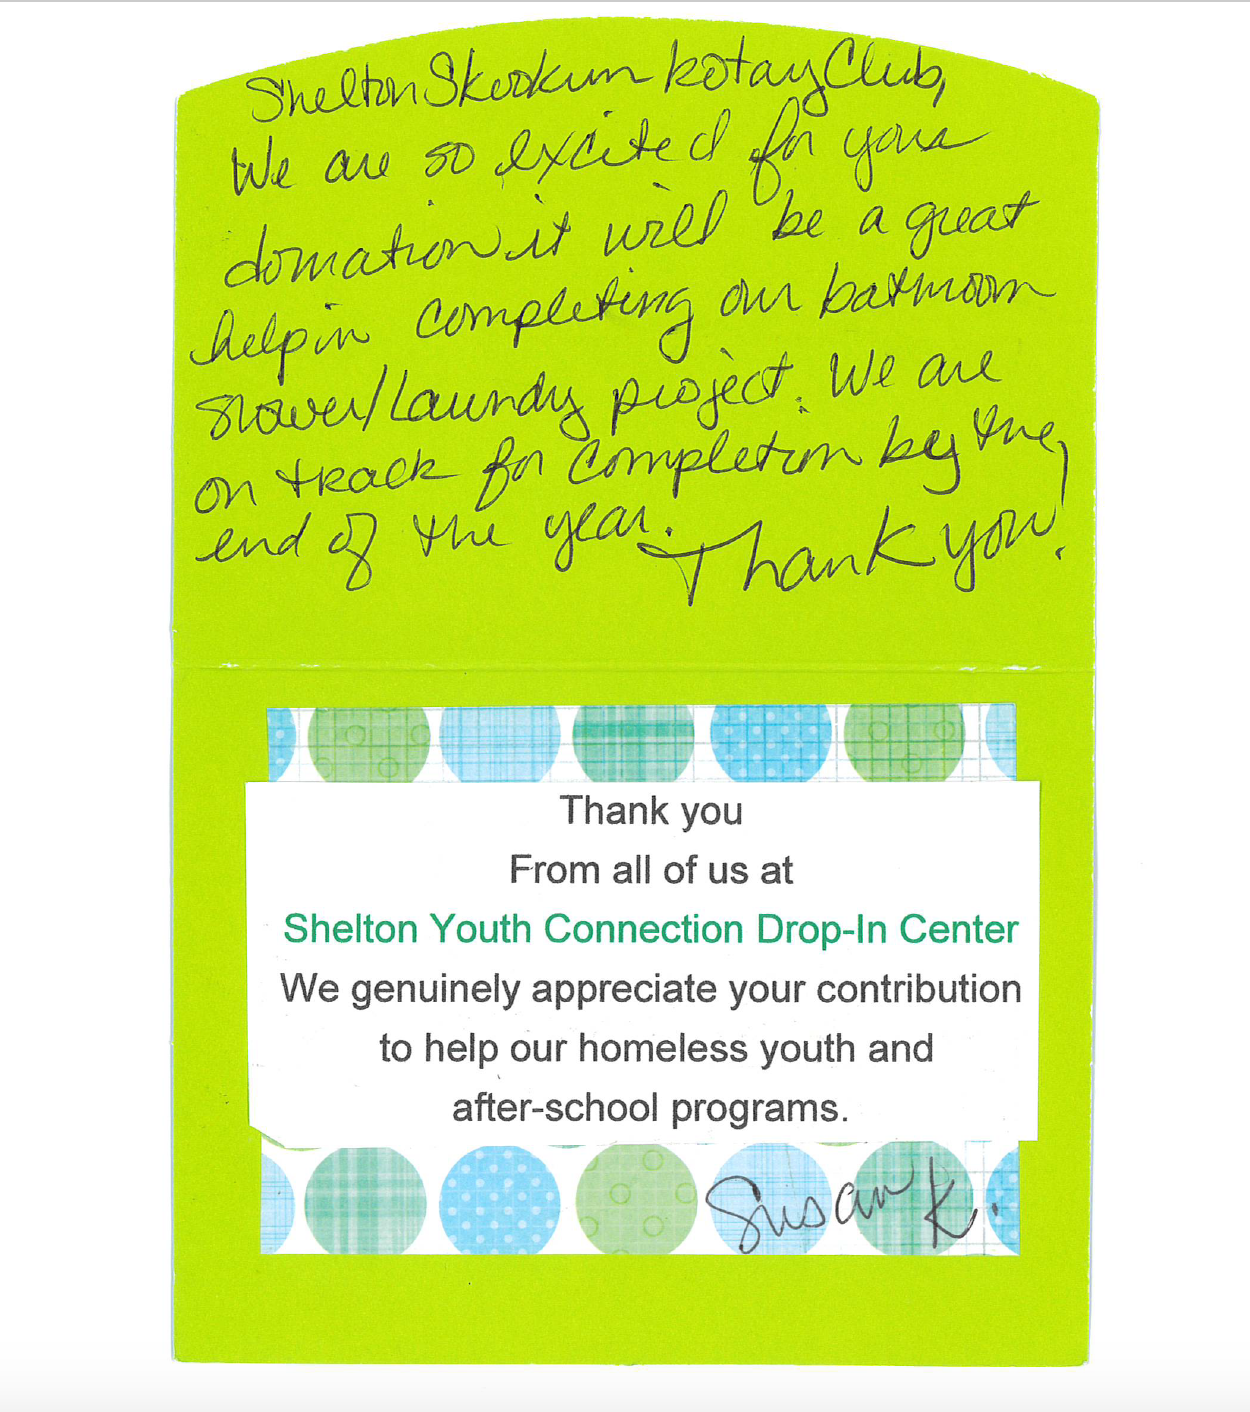 Shelton Skookum Rotary Club,
We are so excited for your
donation it will be a great
help in completing our bathroom
shower/Laundy project. We are
on track for completion by the
end of the year. Thank you!
Thank you
From all of us at
Shelton Youth Connection Drop-In Center
We genuinely appreciate your contribution
to help our homeless youth and
after-school programs.
Susan K.